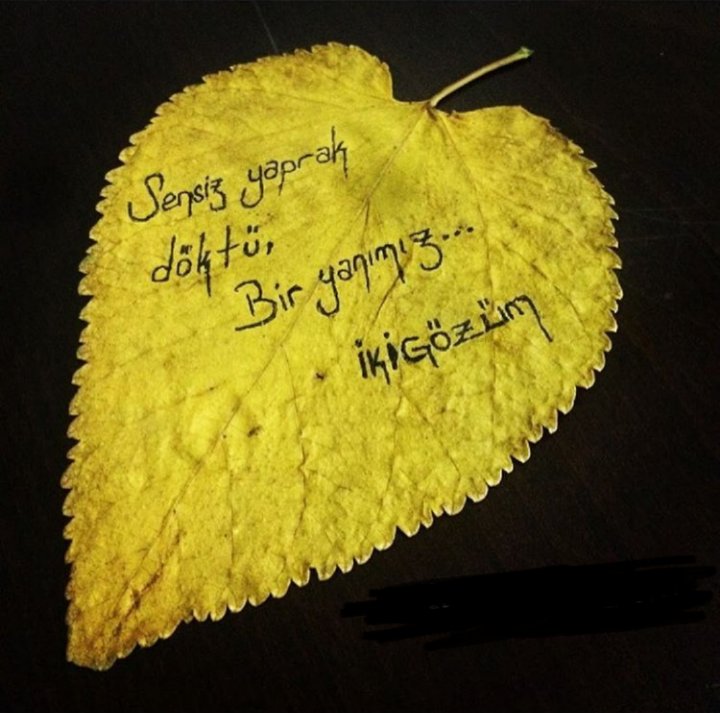 Sensiz yaprak
döktü,
Bir yanımız...
İKİGÖZÜM